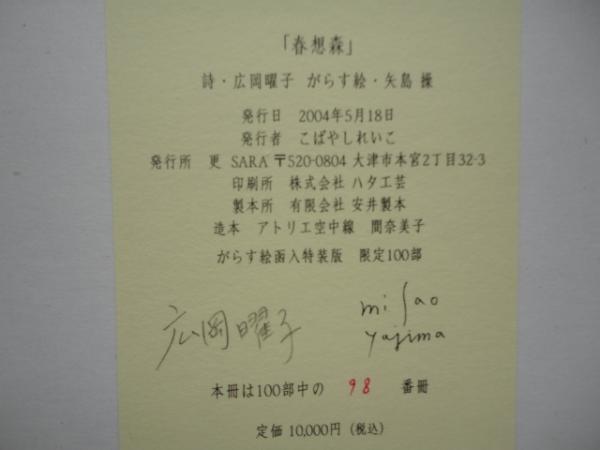 「春想森」
詩・広岡曜子 がらす絵・矢島 操
発行日 2004年5月18日
発行者 こばやしれいこ
発行所 更 SARA 〒520-0804 大津市本宮2丁目32-3
印刷所 株式会社 ハタ工芸
製本所 有限会社 安井製本
造本 アトリエ空中線 間奈美子
がらす絵函入特装版 限定100部
広岡曜子 misao
yajima
本冊は100部中の 98 番冊
定価 10,000円（税込）